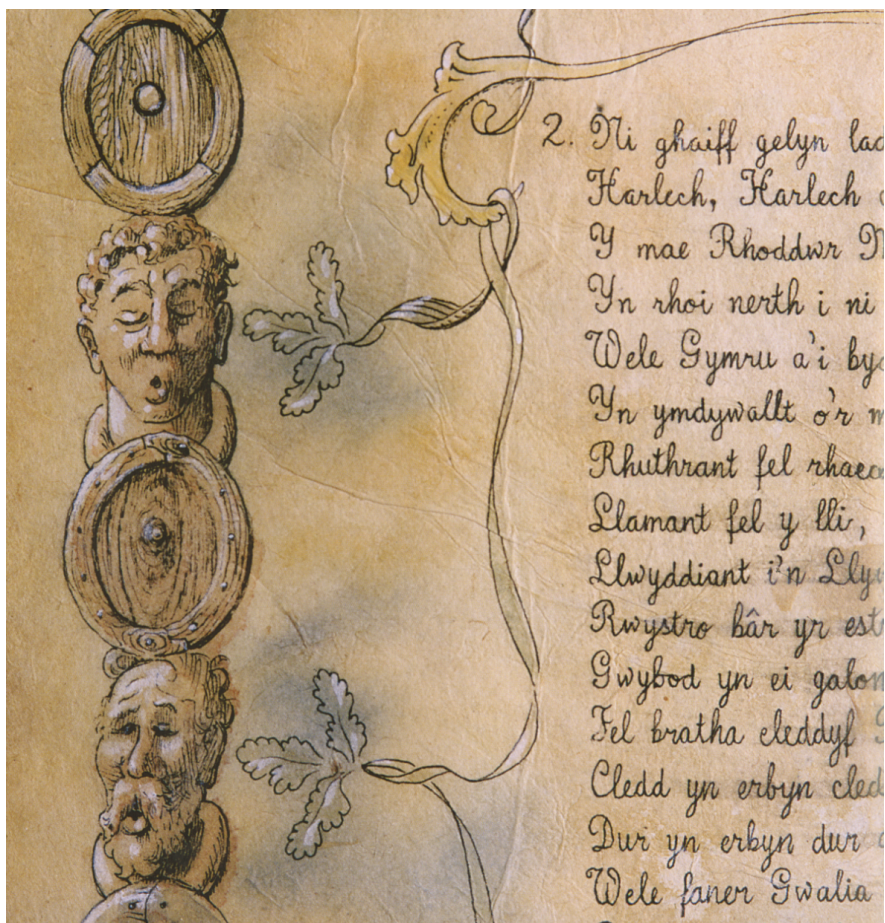 2. Ni ghaiff gelyn
Harlech, Harlech
Y mae Rhoddwr
Yn rhoi nerth i ni
Wele Gymru a'i
Yn ymdywallt o'r
Rhuthrant fel
Llamant fel y lli,
Llwyddiant i'n
Rwystro bâr yr
Gwybod yn ei
Fel bratha cleddyf
Cledd yn erbyn
Dur yn erbyn dur
Wele faner Gwalia